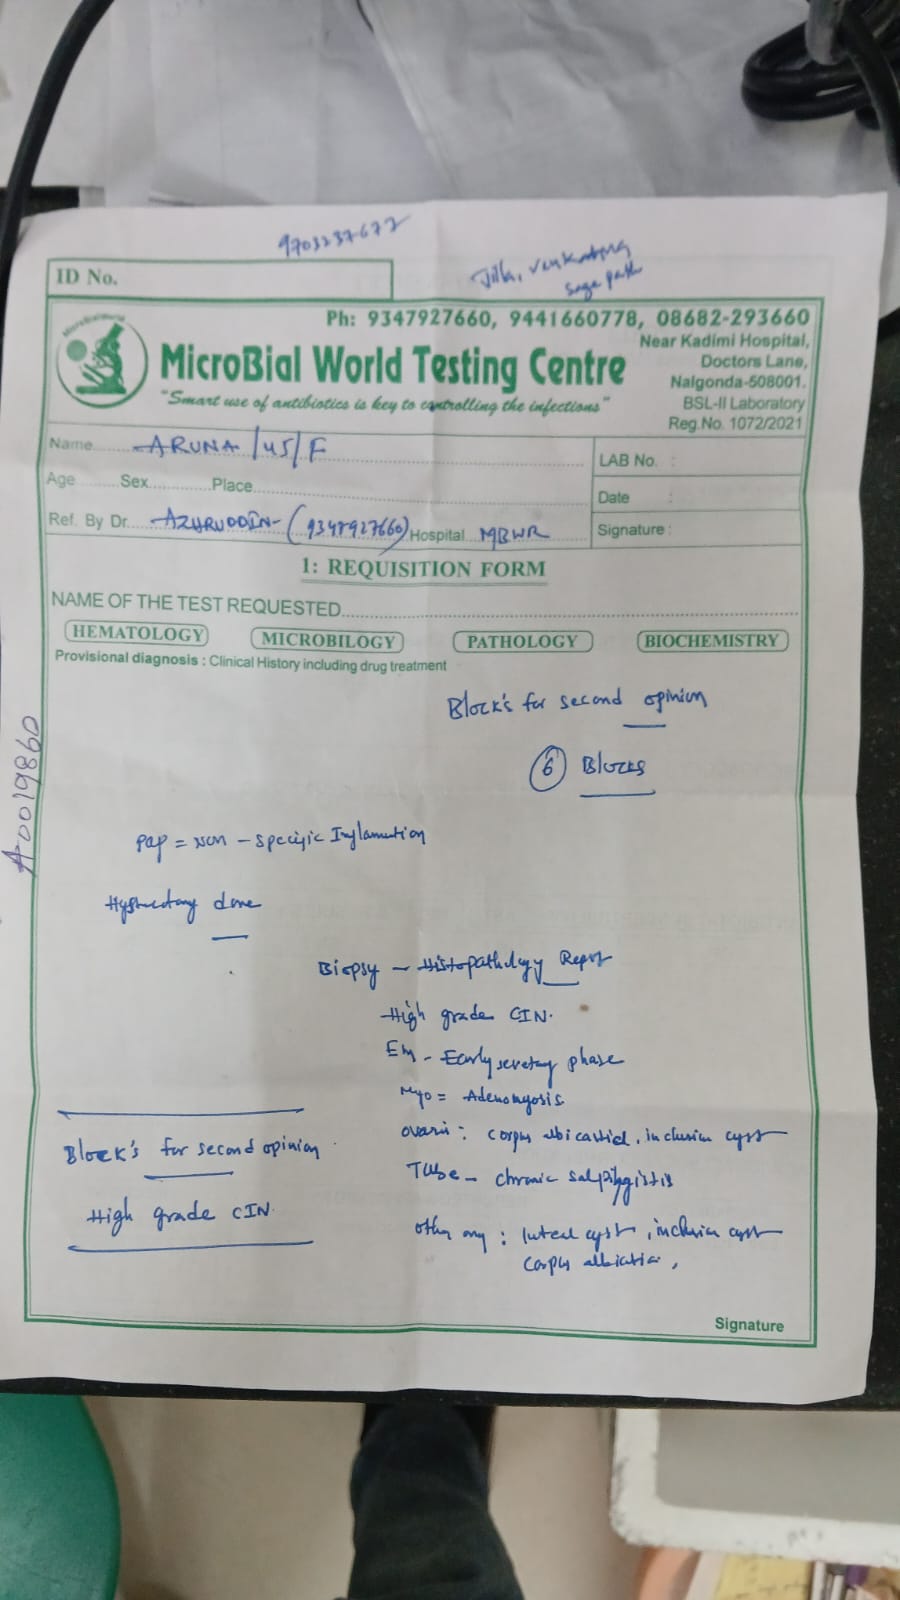 9703237677
ID No.
Ph: 9347927660, 9441660778, 08682-293660
MicroBial World Testing Centre
"Smart use of antibiotics is key to controlling the infections"
Near Kadimi Hospital,
Doctors Lane,
Nalgonda-508001.
BSL-II Laboratory
Reg.No. 1072/2021
Name ARUNA /45/F
LAB No. :
Age Sex Place
Date :
Ref. By Dr. AZHRUDDIN- (9347927660) Hospital MBWR
Signature :
1: REQUISITION FORM
NAME OF THE TEST REQUESTED
HEMATOLOGY MICROBILOGY PATHOLOGY BIOCHEMISTRY
Provisional diagnosis : Clinical History including drug treatment
Block's for second opinion
6 Blocks
A0019860
Pap = Non - specific Inflamution
done
Biopsy - Histopathology Report
High grade CIN.
Em - Early phase
Myo = Adenomyosis
corpus inclusion cyst
Block's for second opinion
Tube - chronic
High grade CIN.
Other any : luteal cyst, inclusion cyst
corpus
Signature